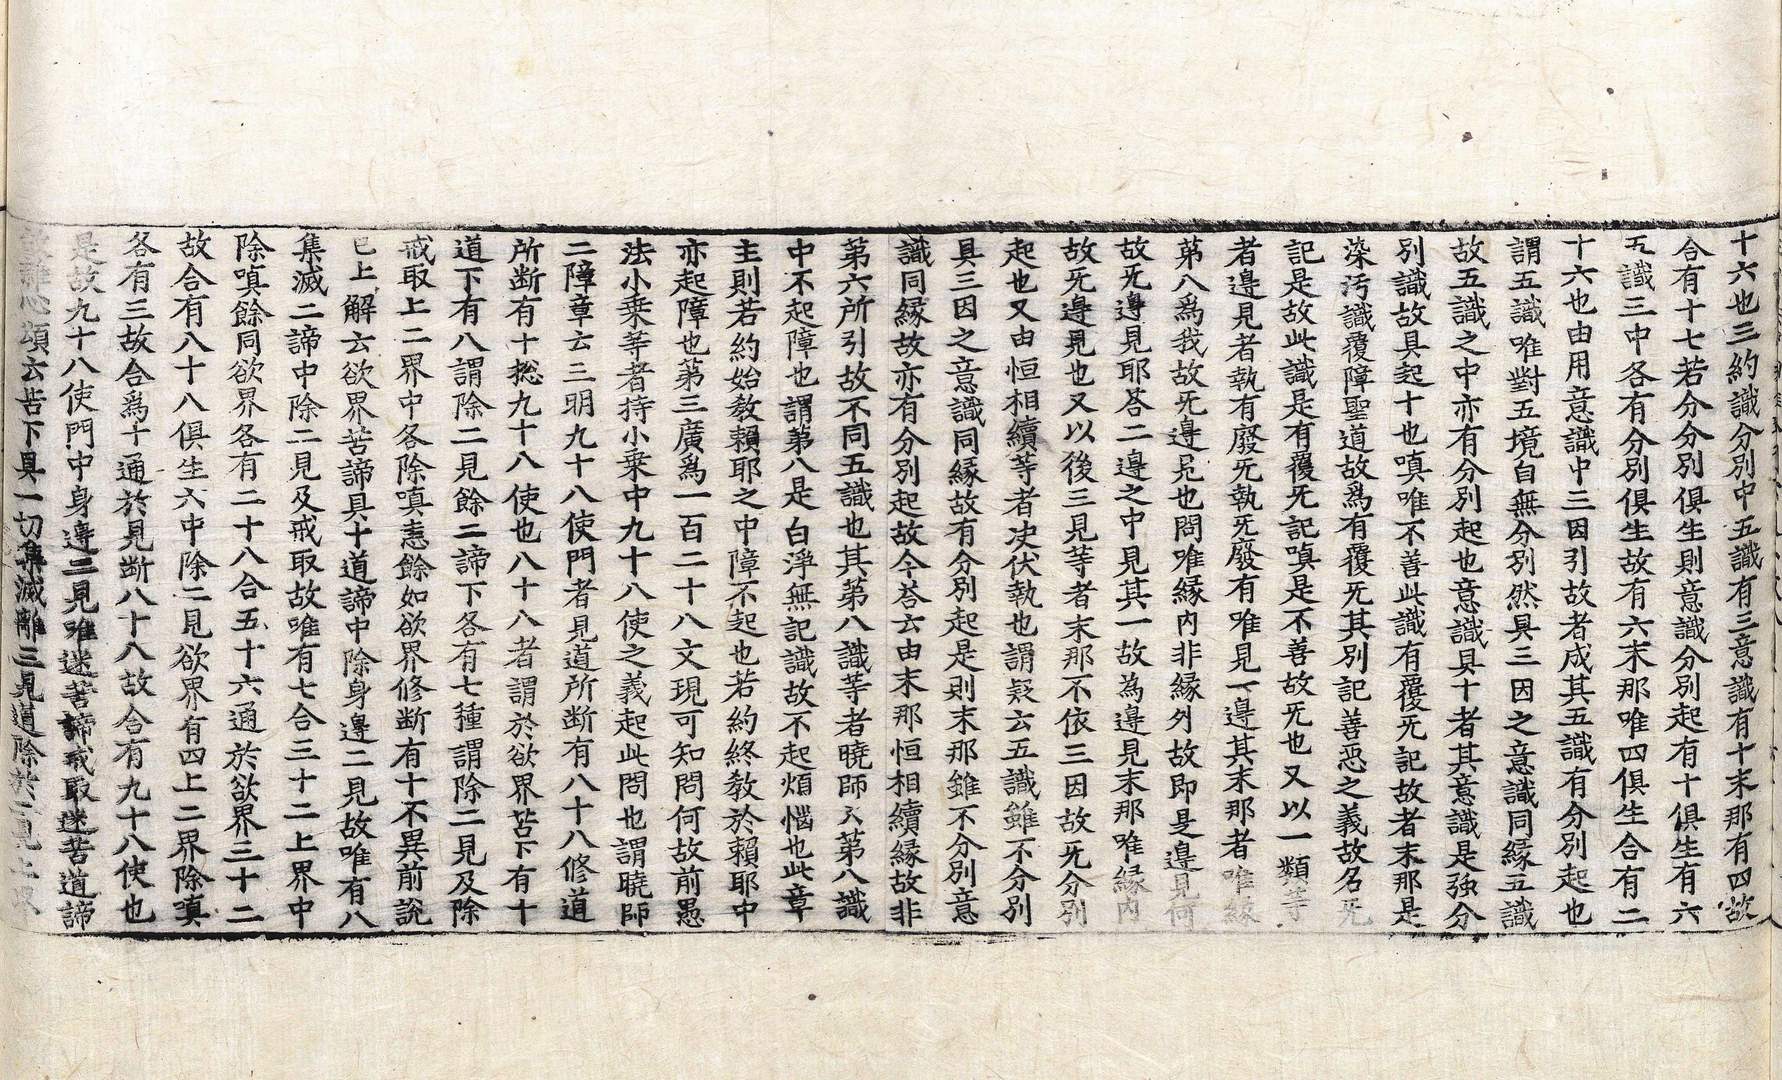 十六也三約識分別中五識有三意識有十末那有四故
合有十七若分分別俱生則意識分別起有十俱生有六
五識三中各有分別俱生故有六末那唯四俱生合有二
十六也由用意識中三因引故者成其五識有分別起也
謂五識唯對五境自無分別然具三因之意識同緣五識
故五識之中亦有分別起也意識具十者其意識是強分
別識故具起十也嗔唯不善此識有覆旡記故者末那是
染汚識覆障聖道故爲有覆旡其別記善惡之義故名旡
記是故此識是有覆旡記嗔是不善故旡也又以一類等
者邊見者執有廢旡執旡廢有唯見一邊其末那者唯緣
第八爲我故旡邊見也問唯緣內非緣外故即是邊見何
故旡邊見耶荅二邊之中見其一故為邊見末那唯緣內
故旡邊見也又以後三見等者末那不依三因故旡分別
起也又由恒相續等者决伏執也謂疑云五識雖不分別
具三因之意識同緣故有分別起是則末那雖不分別意
識同緣故亦有分別起故今荅云由末那恒相續緣故非
第六所引故不同五識也其第八識等者曉師云第八識
中不起障也謂第八是白淨無記識故不起煩惱也此章
主則若約始敎賴耶之中障不起也若約終敎於賴耶中
亦起障也第三廣爲一百二十八文現可知問何故前愚
法小乗等者持小乗中九十八使之義起此問也謂曉師
二障章云三明九十八使門者見道所断有八十八修道
所断有十捴九十八使也八十八者謂於欲界苦下有十
道下有八謂除二見餘二諦下各有七種謂除二見及除
戒取上二界中各除嗔恚餘如欲界修断有十不異前說
已上解云欲界苦諦具十道諦中除身邊二見故唯有八
集滅二諦中除二見及戒取故唯有七合三十二上界中
除嗔餘同欲界各有二十八合五十六通於欲界三十二
故合有八十八俱生六中除二見欲界有四上二界除嗔
各有三故合爲十通於見断八十八故合有九十八使也
是故九十八使門中身邊二見唯迷苦諦戒取迷苦道諦
頌云苦下具一切集滅離三見道除於二見上界